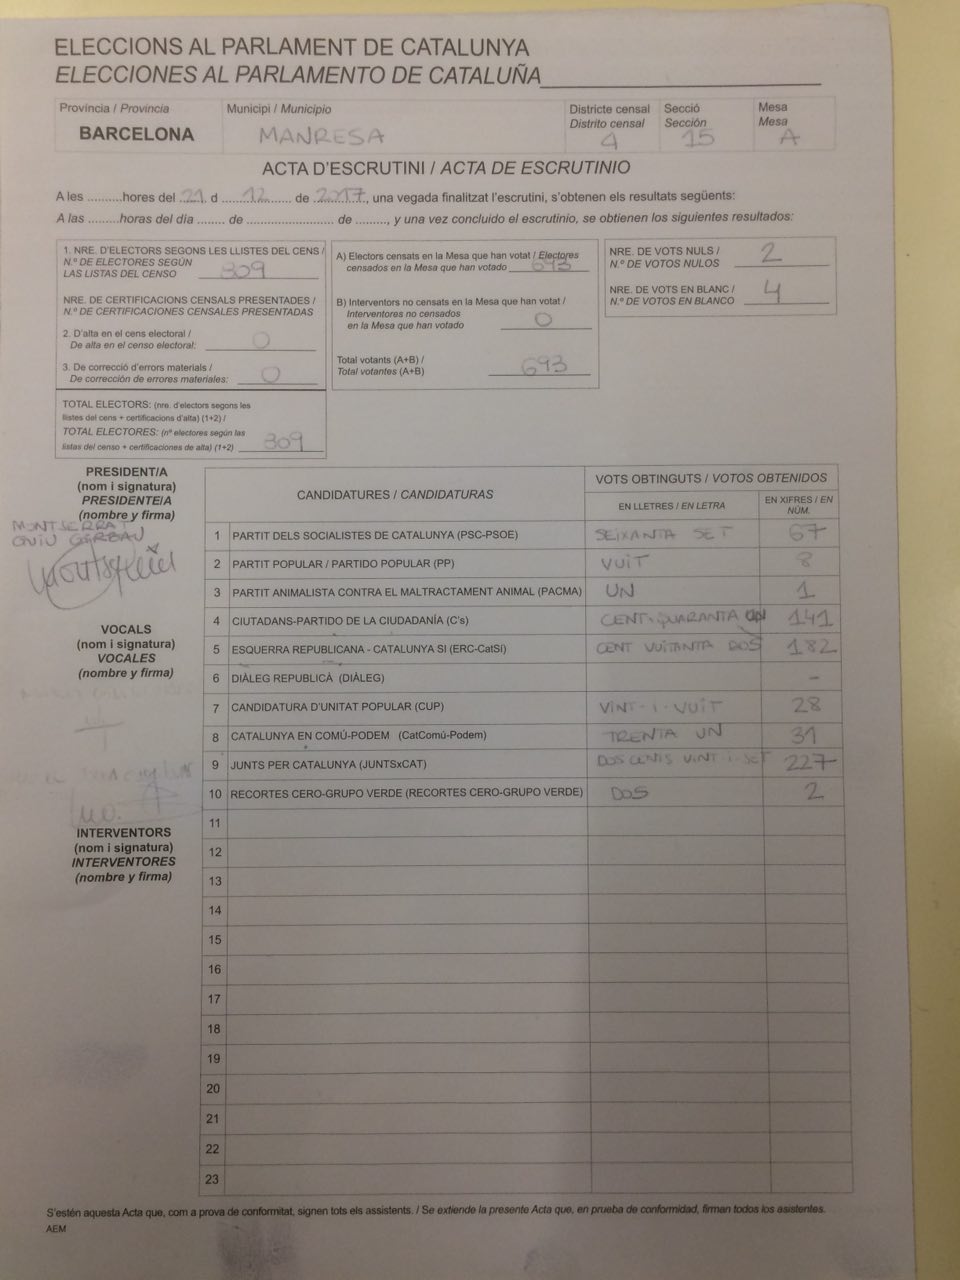 ELECCIONS AL PARLAMENT DE CATALUNYA
ELECCIONES AL PARLAMENTO DE CATALUÑA
Província / Provincia
BARCELONA
Municipi / Municipio
MANRESA
Districte censal
Distrito censal
4
Secció
Sección
15
Mesa
Mesa
A
ACTA D'ESCRUTINI / ACTA DE ESCRUTINIO
A les ..........hores del .21. d ....12.... de .2017., una vegada finalitzat l'escrutini, s'obtenen els resultats següents:
A las .........horas del día ........ de ......................... de ........., y una vez concluido el escrutinio, se obtienen los siguientes resultados:
1. NRE. D'ELECTORS SEGONS LES LLISTES DEL CENS /
N.º DE ELECTORES SEGÚN
LAS LISTAS DEL CENSO 809
NRE. DE CERTIFICACIONS CENSALS PRESENTADES /
N.º DE CERTIFICACIONES CENSALES PRESENTADAS
2. D'alta en el cens electoral /
De alta en el censo electoral: 0
3. De correcció d'errors materials /
De corrección de errores materiales: 0
TOTAL ELECTORS: (nre. d'electors segons les
llistes del cens + certificacions d'alta) (1+2) /
TOTAL ELECTORES: (nº electores según las
listas del censo + certificaciones de alta) (1+2) 809
A) Electors censats en la Mesa que han votat / Electores
censados en la Mesa que han votado 693
B) Interventors no censats en la Mesa que han votat /
Interventores no censados
en la Mesa que han votado 0
Total votants (A+B) /
Total votantes (A+B) 693
NRE. DE VOTS NULS /
N.º DE VOTOS NULOS 2
NRE. DE VOTS EN BLANC /
N.º DE VOTOS EN BLANCO 4
PRESIDENT/A
(nom i signatura)
PRESIDENTE/A
(nombre y firma)
MONTSERRAT
VOCALS
(nom i signatura)
VOCALES
(nombre y firma)
INTERVENTORS
(nom i signatura)
INTERVENTORES
(nombre y firma)
CANDIDATURES / CANDIDATURAS
VOTS OBTINGUTS / VOTOS OBTENIDOS
EN LLETRES / EN LETRA
EN XIFRES / EN
NÚM.
1 PARTIT DELS SOCIALISTES DE CATALUNYA (PSC-PSOE) SEIXANTA SET 67
2 PARTIT POPULAR / PARTIDO POPULAR (PP) VUIT 8
3 PARTIT ANIMALISTA CONTRA EL MALTRACTAMENT ANIMAL (PACMA) UN 1
4 CIUTADANS-PARTIDO DE LA CIUDADANÍA (C's) CENT-QUARANTA UN 141
5 ESQUERRA REPUBLICANA - CATALUNYA SI (ERC-CatSí) CENT VUITANTA DOS 182
6 DIÀLEG REPUBLICÀ (DIÀLEG) -
7 CANDIDATURA D'UNITAT POPULAR (CUP) VINT-I-VUIT 28
8 CATALUNYA EN COMÚ-PODEM (CatComú-Podem) TRENTA UN 31
9 JUNTS PER CATALUNYA (JUNTSxCAT) DOS CENTS VINT-I-SET 227
10 RECORTES CERO-GRUPO VERDE (RECORTES CERO-GRUPO VERDE) DOS 2
11
12
13
14
15
16
17
18
19
20
21
22
23
S'estén aquesta Acta que, com a prova de conformitat, signen tots els assistents. / Se extiende la presente Acta que, en prueba de conformidad, firman todos los asistentes.
AEM